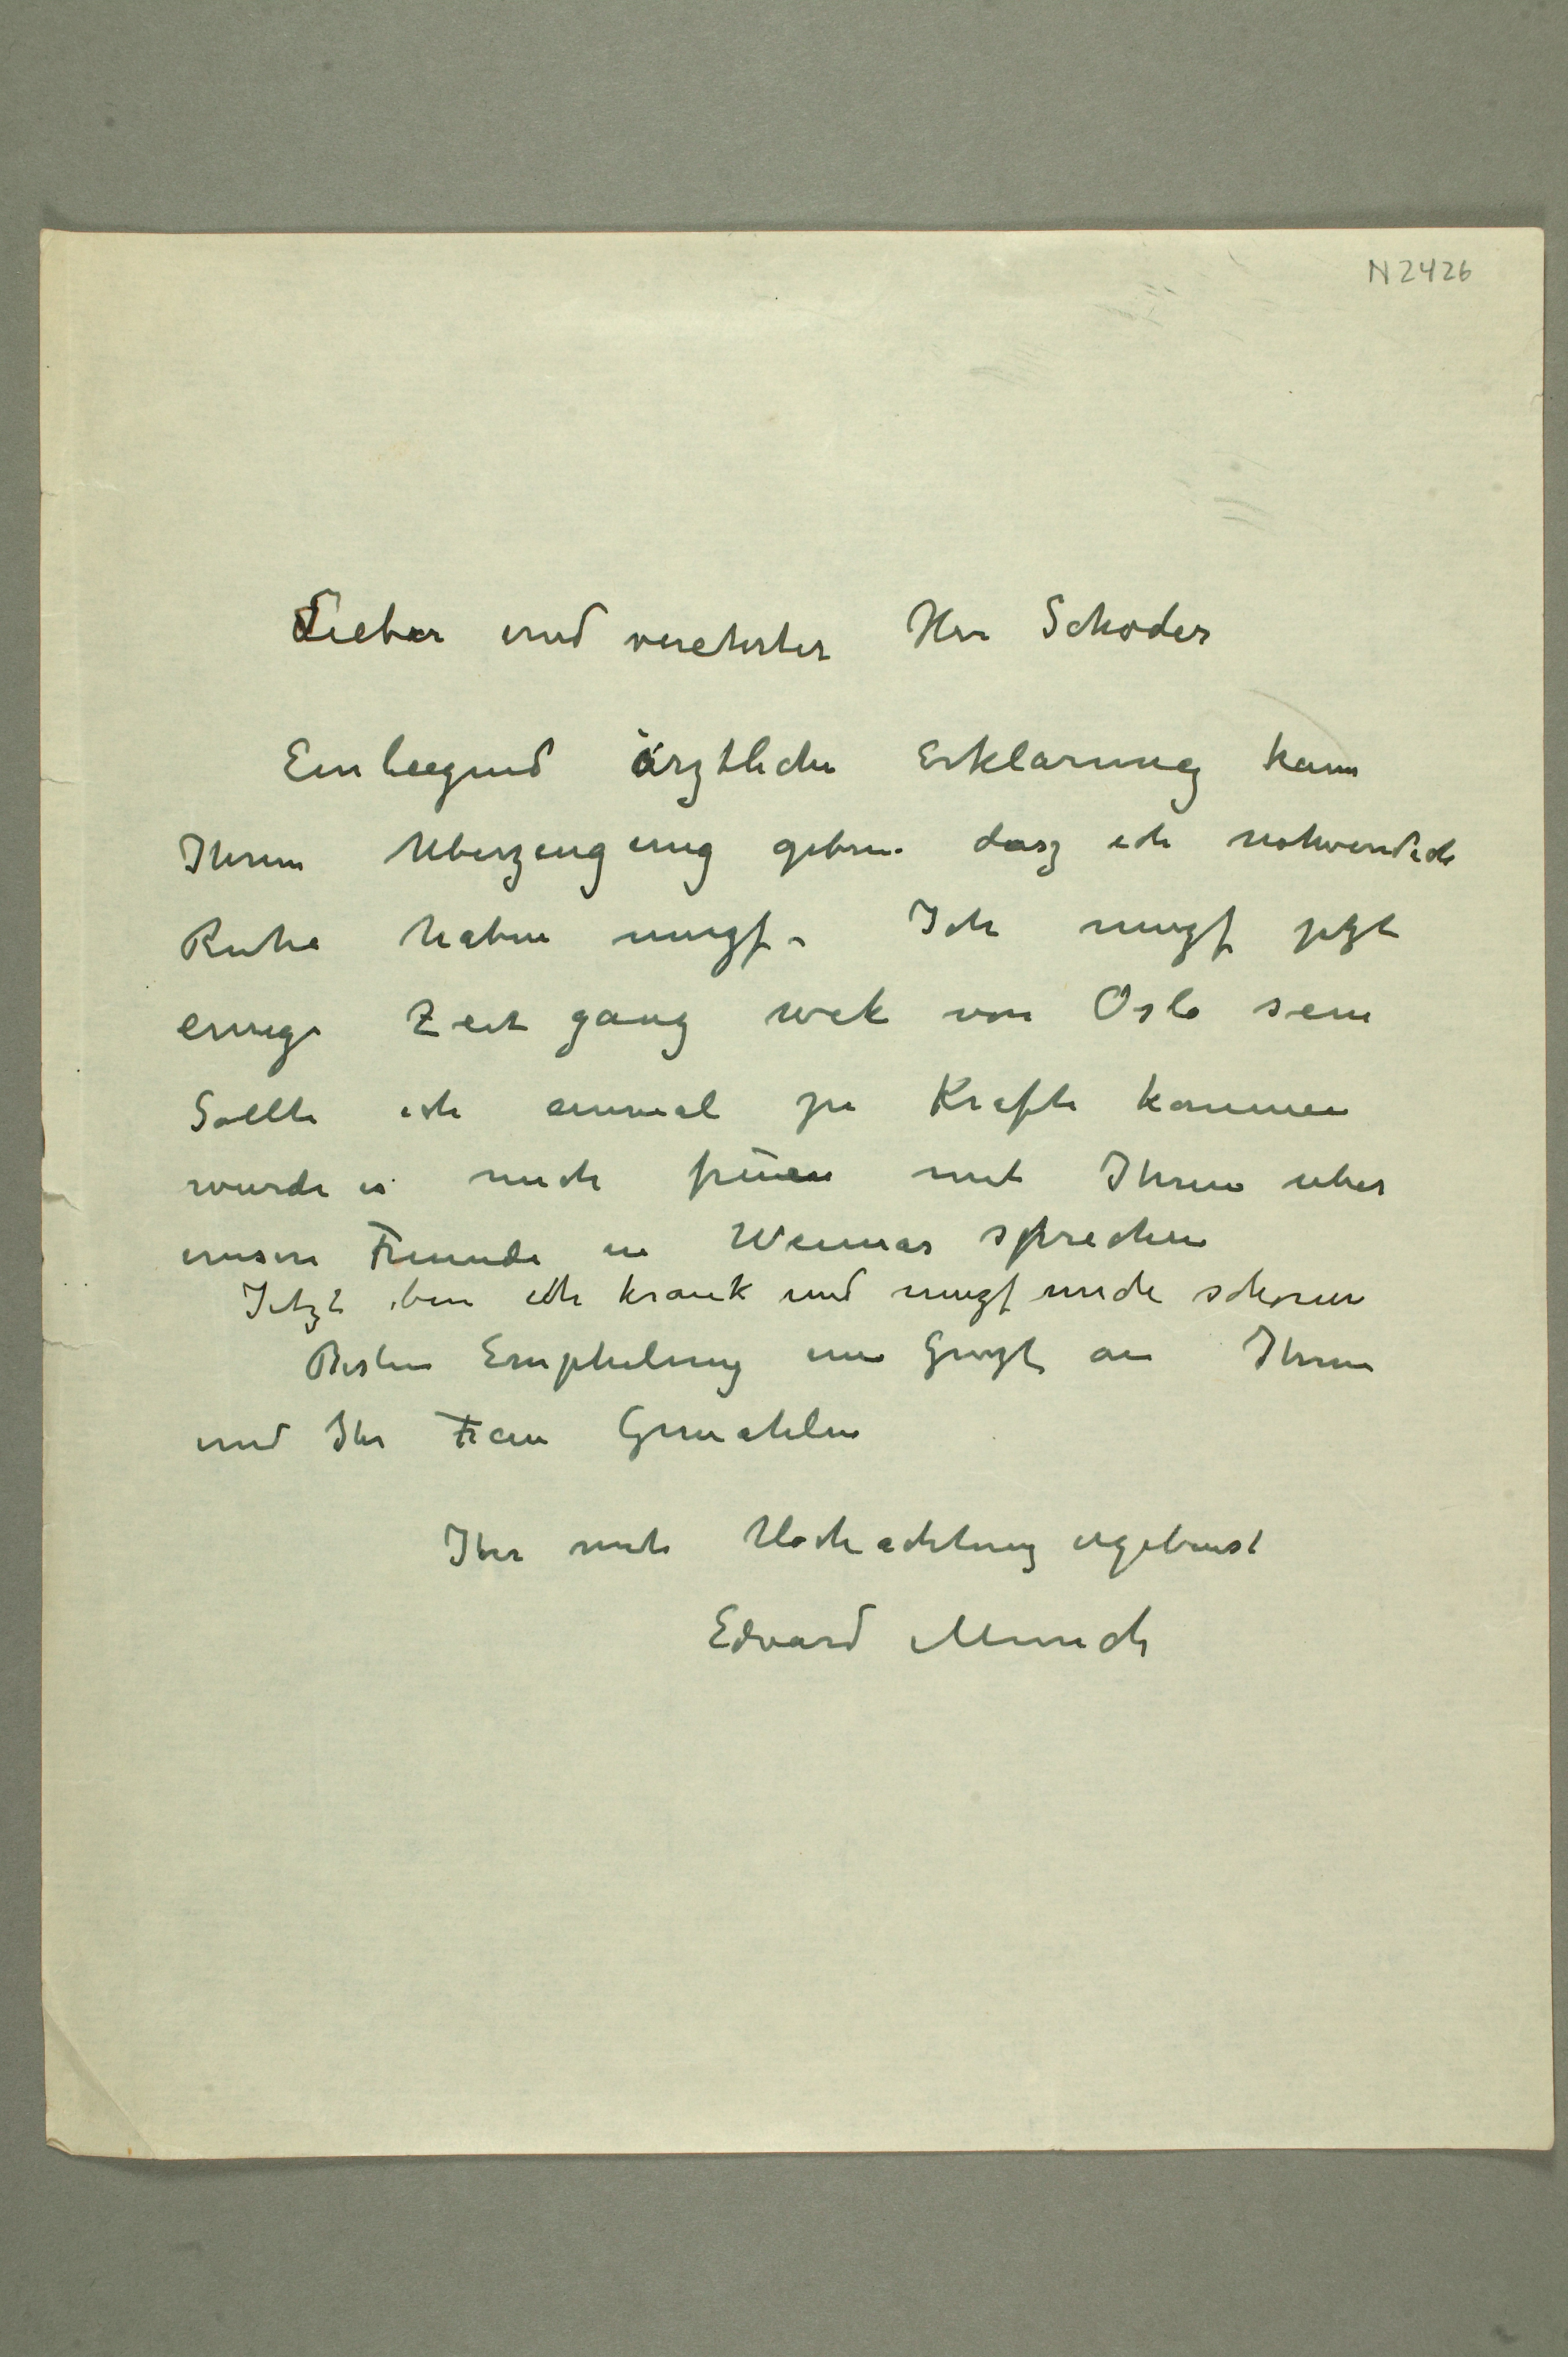 N 2426
Lieber und verehrter Herr Schoder
Einliegend ärztliche Erklärung kann
Ihnen Uberzeugung geben dasz ich nothwendich
Ruhe haben muszs. Ich muszs jetzt
einige Zeit ganz wek von Oslo sein
Sollte ich einmal zu Krafte kommen
wurde es mich freuen mit Ihnen uber
unsere Freunde in Weimar sprechen
Jetzt bin ich krank und muszs mich schonen
Besten Empfelung und an Ihnen
und Ihr Frau Gemahlin
Ihr mit Hochachtung ergebenst
Edvard Munch